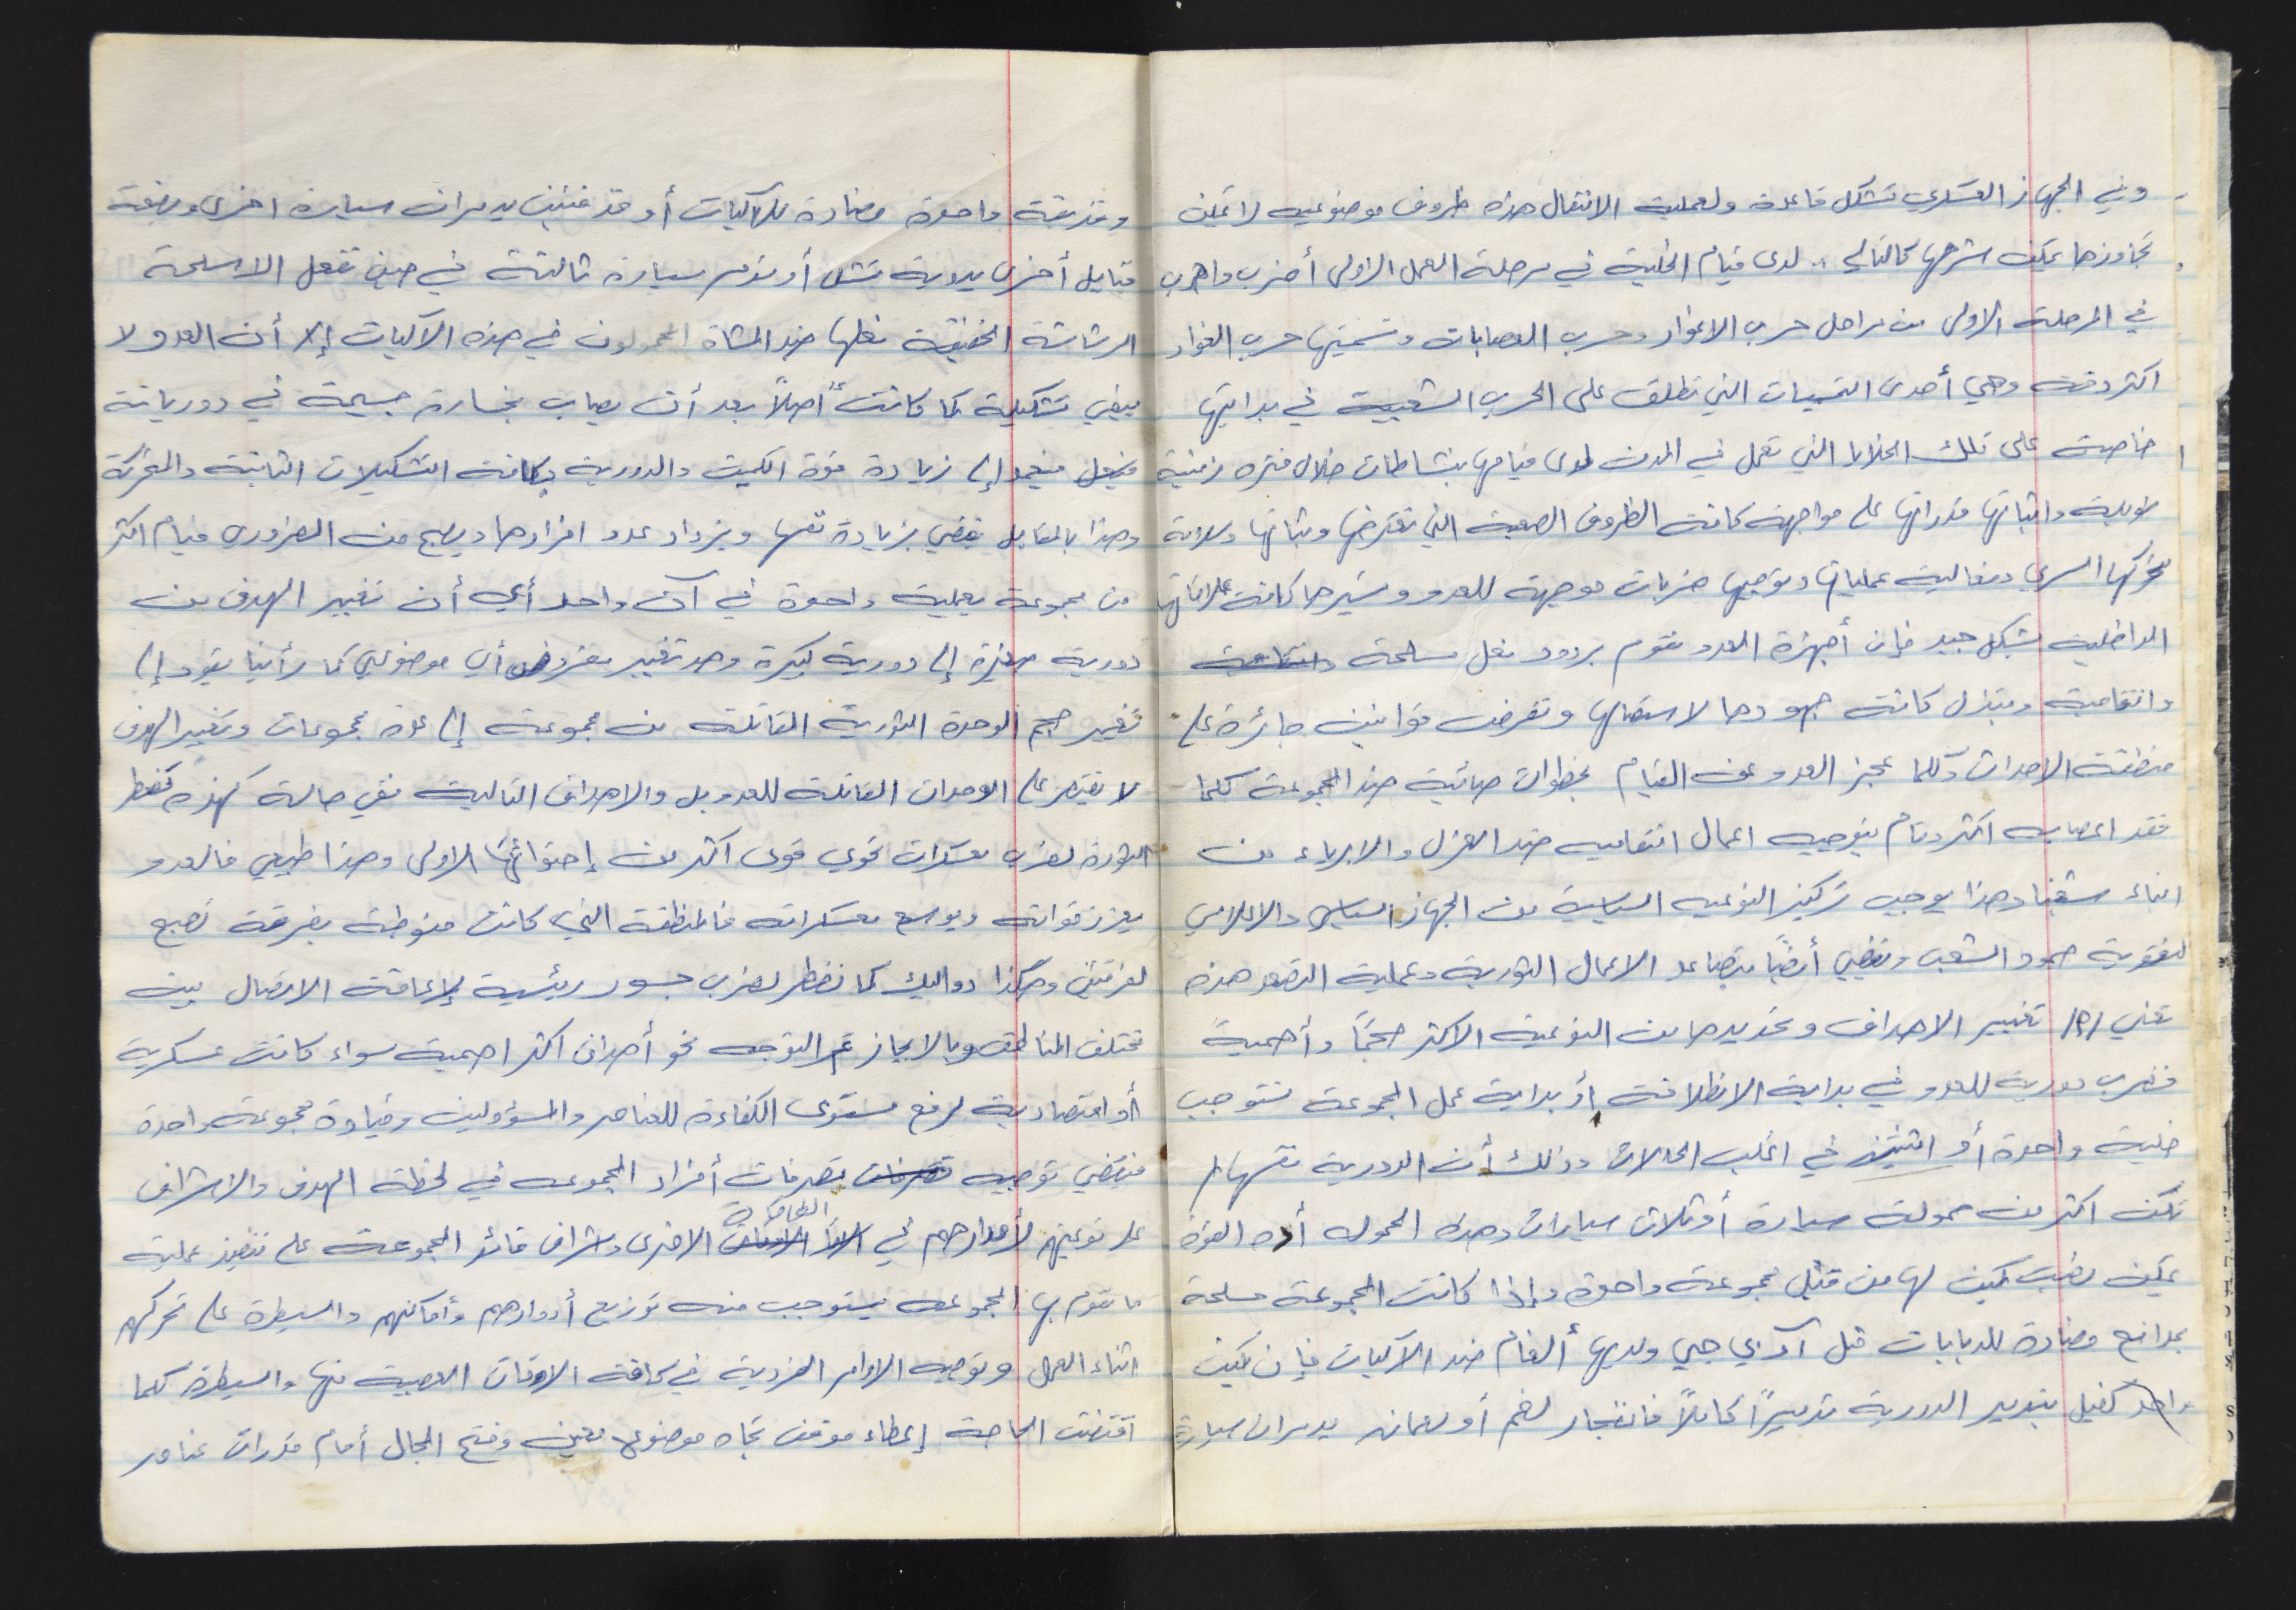 وفي الجهاز العسكري تشكل قاعدة ولعملية الانتقال هذه ظروف موضوعيه لا يمكن
تجاوزها يمكن شرحها كالتالي :. لدى قيام الخلية في مرحلة العمل الاولى أضرب واهرب
في المرحلة الاولى من مراحل حرب الاغوار وحرب العصابات وتسميتها حرب الغوار
اكثر دقة وهي أحدى التسميات التي تطلق على الحرب الشعبية في بدايتها
خاصة على تلك الخلايا التي تعمل في المدن لدى قيامها بنشاطات خلال فتره زمنية
طويلة واثباتها قدراتها على مواجهة كافة الظروف الصعبة التي تعترضها وثباتها وسلامة
تحركها السري وفعالية عملياتها وتوجيها ضربات موجهة للعدو وسيرها كافة علاقاتها
الداخلية بشكل جيد فإن أجهزة العدو تقوم بردود فعل مسلحة وانتقامية
وانتقامية وتبذل كافة جهودها لاستئصالها وتفرض قوانين جائرة على
منطقة الاحداث وكلما عجز العدو عن القيام بخطوات مضادة ضد المجموعة كلما
فقد اعصابه اكثر وقام بتوجيه اعمال انتقاميه ضد العزل والابرياء من
ابناء شعبنا وهذا يوجب تركيز التوعيه السياسية من الجهاز السياسي والاعلامي
لتقوية صمود الشعب وتقضي أيضاً بتصاعد الاعمال الثورية وعملية التصعد هذه
تعني /٢/ تغيير الاهداف وتحديدها من النوعية الاكثر حجماً وأهمية
فضرب دورية للعدو في بداية الانطلاقة أو بداية عمل المجموعة تستوجب
خلية واحدة أو اثنتين في اغلب الحالات وذلك أن الدورية نفسها لم
تكن اكثر من حمولة سيارة أو ثلاث سيارات وهذه الحموله أو القوة
يمكن نصب كمين لها من قبل مجموعة واحدة وإذا كانت المجموعة مسلحة
بمدافع مضادة للدبابات مثل آر بي جي ولديها ألغام ضد الآليات فإن كمين
واحد كفيل بتدمير الدورية تدميراً كاملاً فانفجار لغم أو لغمان يدمران سيارة
وقذيفة واحدة مضادة للآليات أو قذيفتين يدمران سيارة اخرى وبضعة
قنابل أخرى يدوية تشل أو تدمر سيارة ثالثة في حين تفعل الاسلحة
الرشاشة الخفيفة فعلها ضد المشاة المحمولون في هذه الآليات إلا أن العدو لا
يبقي تشكيلة كما كانت أصلاً بعد أن يصاب بخسارة جسيمة في دورياته
فيعمد إلى زيادة قوة الكمين والدورية وكافة التشكيلات الثابتة والمتحركة
وهذا بالمقابل يقضي بزيادة نفسها ويزداد عدد افرادها ويصبح من الضروري قيام اكثر
من مجموعة بعملية واحدة في آن واحد أي أن تغيير الهدف من
دورية صغيرة إلى دورية كبيرة وهو تغيير مفروض أي موضوعي كما رأينا يقود إلى
تغيير حجم الوحدة الثورية المقاتلة من مجموعة إلى عدة مجموعات وتغيير الهدف
لا يقتصر على الوحدات المقاتلة للعدو بل والاهداف التالية ففي حالة كهذه تضطر
الثورة لضرب معسكرات تحوي قوى اكثر من إحتوائها الاولى وهذا طبيعي فالعدو
يعزز قواته ويوسع معسكراته فالمنطقة التي كانت منوطة بفرقة تصبح
لفرقتين وهكذا دواليك كما تضطر لضرب جسور رئيسية لإعاقة الاتصال بين
مختلف المناطق وبالايجاز يتم التوجه نحو أهداف اكثر اهمية سواء كانت عسكرية
أو اقتصادية لرفع مستوى الكفاءة للعناصر والمسؤولين وقيادة مجموعة واحدة
فتقتضي توجيه تصرفات أفراد المجموعه في لحظة الهدف والاشراف
على توعيتهم لأدوارهم في الاوقات الاخرى واشراف قائد المجموعة على تنفيذ عملية
ما تقوم بها المجموعه يستوجب منه توزيع أدوارهم وأماكنهم والسيطرة على تحركهم
اثناء العمل وتوجيه الاوامر الفردية في كافة الاوقات العصيبة منها والسيطرة كلما
اقتضت الحاجة إعطاء موقف تجاه موضوع معين وفتح المجال أمام قدرات عناصر